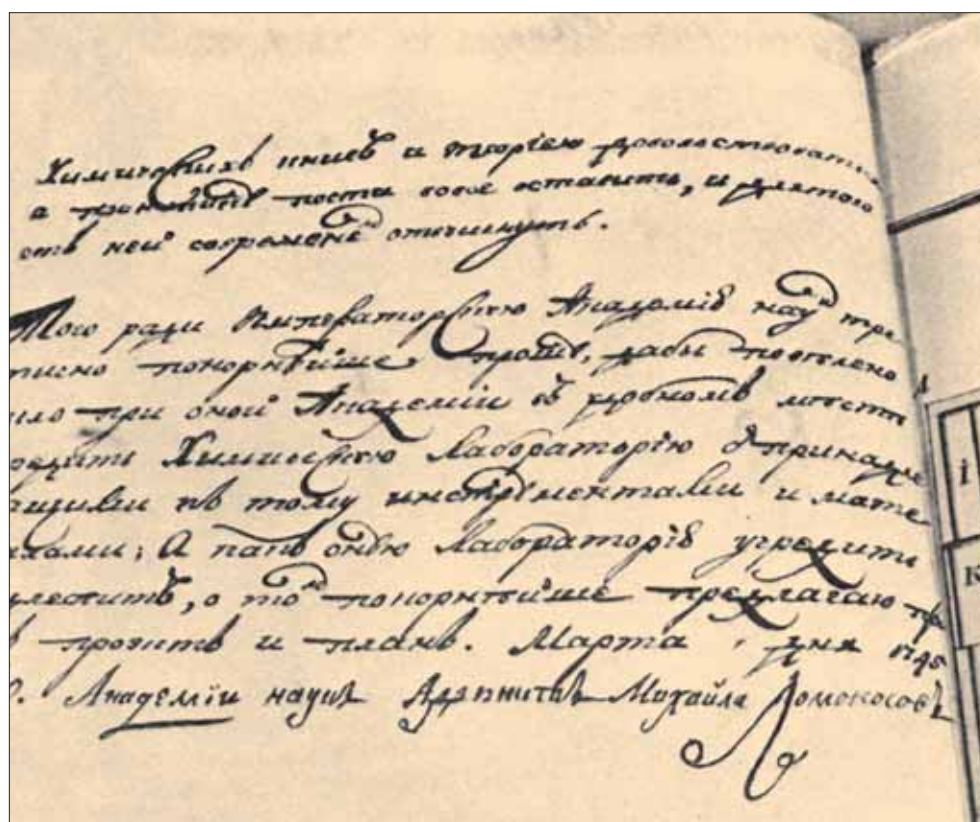 Химическихъ книгъ и теорїею довольствовать
а практику почти вовсе оставить, и для того
отъ ней современемъ отвыкнуть.
Того ради Императорскую Академїю наукъ
покорнѣйше прошу, дабы повелено
было при оной Академїи въ удобномъ мѣстѣ
учредить Химическую Лабораторїю с принадле
жащими къ тому инструментами и мате
рїалами; А какъ оную Лабораторїю учредить
надлежитъ, о томъ покорнѣйше предлагаю пр
проэктъ и планъ. Марта дня 1745
Академїи наукъ Адъюнктъ Михайла Ломоносовъ
І
К